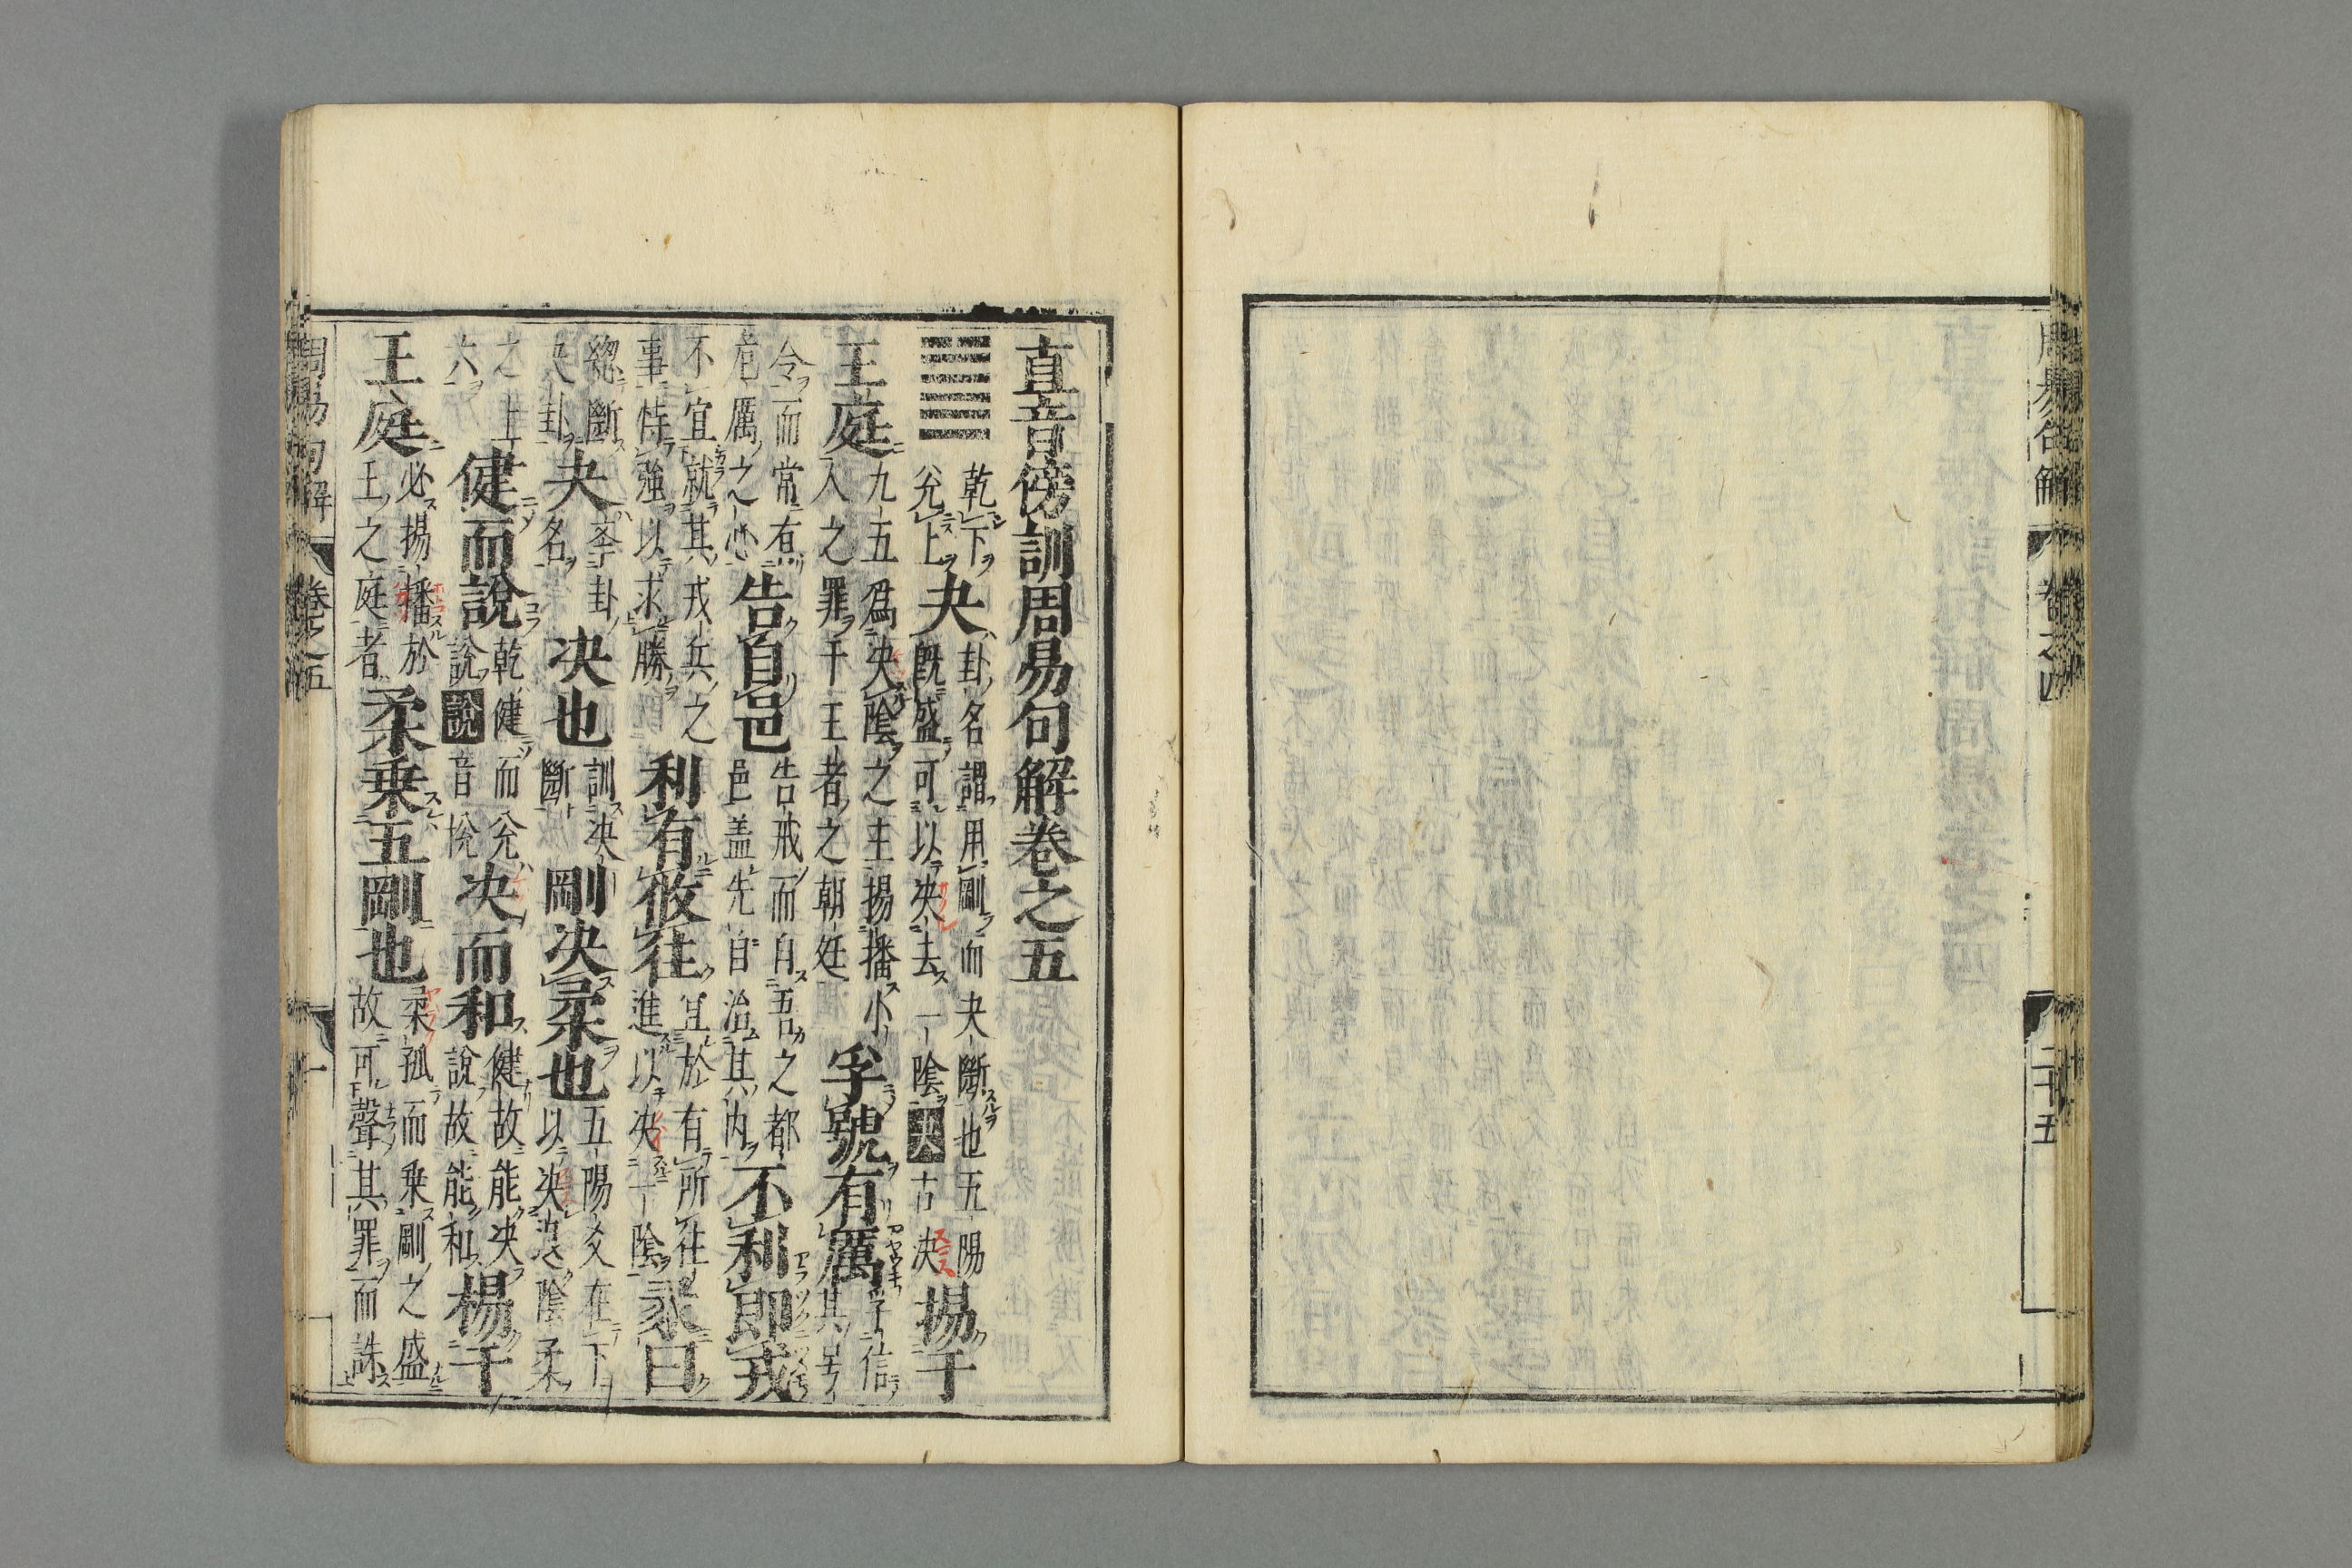 周易句解
卷之四
二十五
直音傍訓周易句解卷之五
乾下兊上
夬
卦名謂用剛而夬斷也五陽
既盛可以决去一陰夬古决
揚于
王庭
九五爲决陰之主揚播小
人之罪于王者之朝廷
孚號有厲
孚信其号
令而常有
危厲之心
告自邑
告戒而自吾之都
邑盖先自治其内
不利即戎
不宜就其戎兵之
事恃強以求勝
利有攸往
冝於有所往
進以决一陰
彖曰
緫斷
夬卦
夬
夲卦
名
决也
訓决
斷
剛决柔也
五陽爻在下
以决陰柔
之上
六
健而說
乾健而兊
說說音悅
决而和
健故能决
說故能和
楊于
王庭
必揚播於
王之庭者
柔乗五剛也
柔孤而乗剛之盛
故可聲其罪而誅
周易句解
卷之五
一